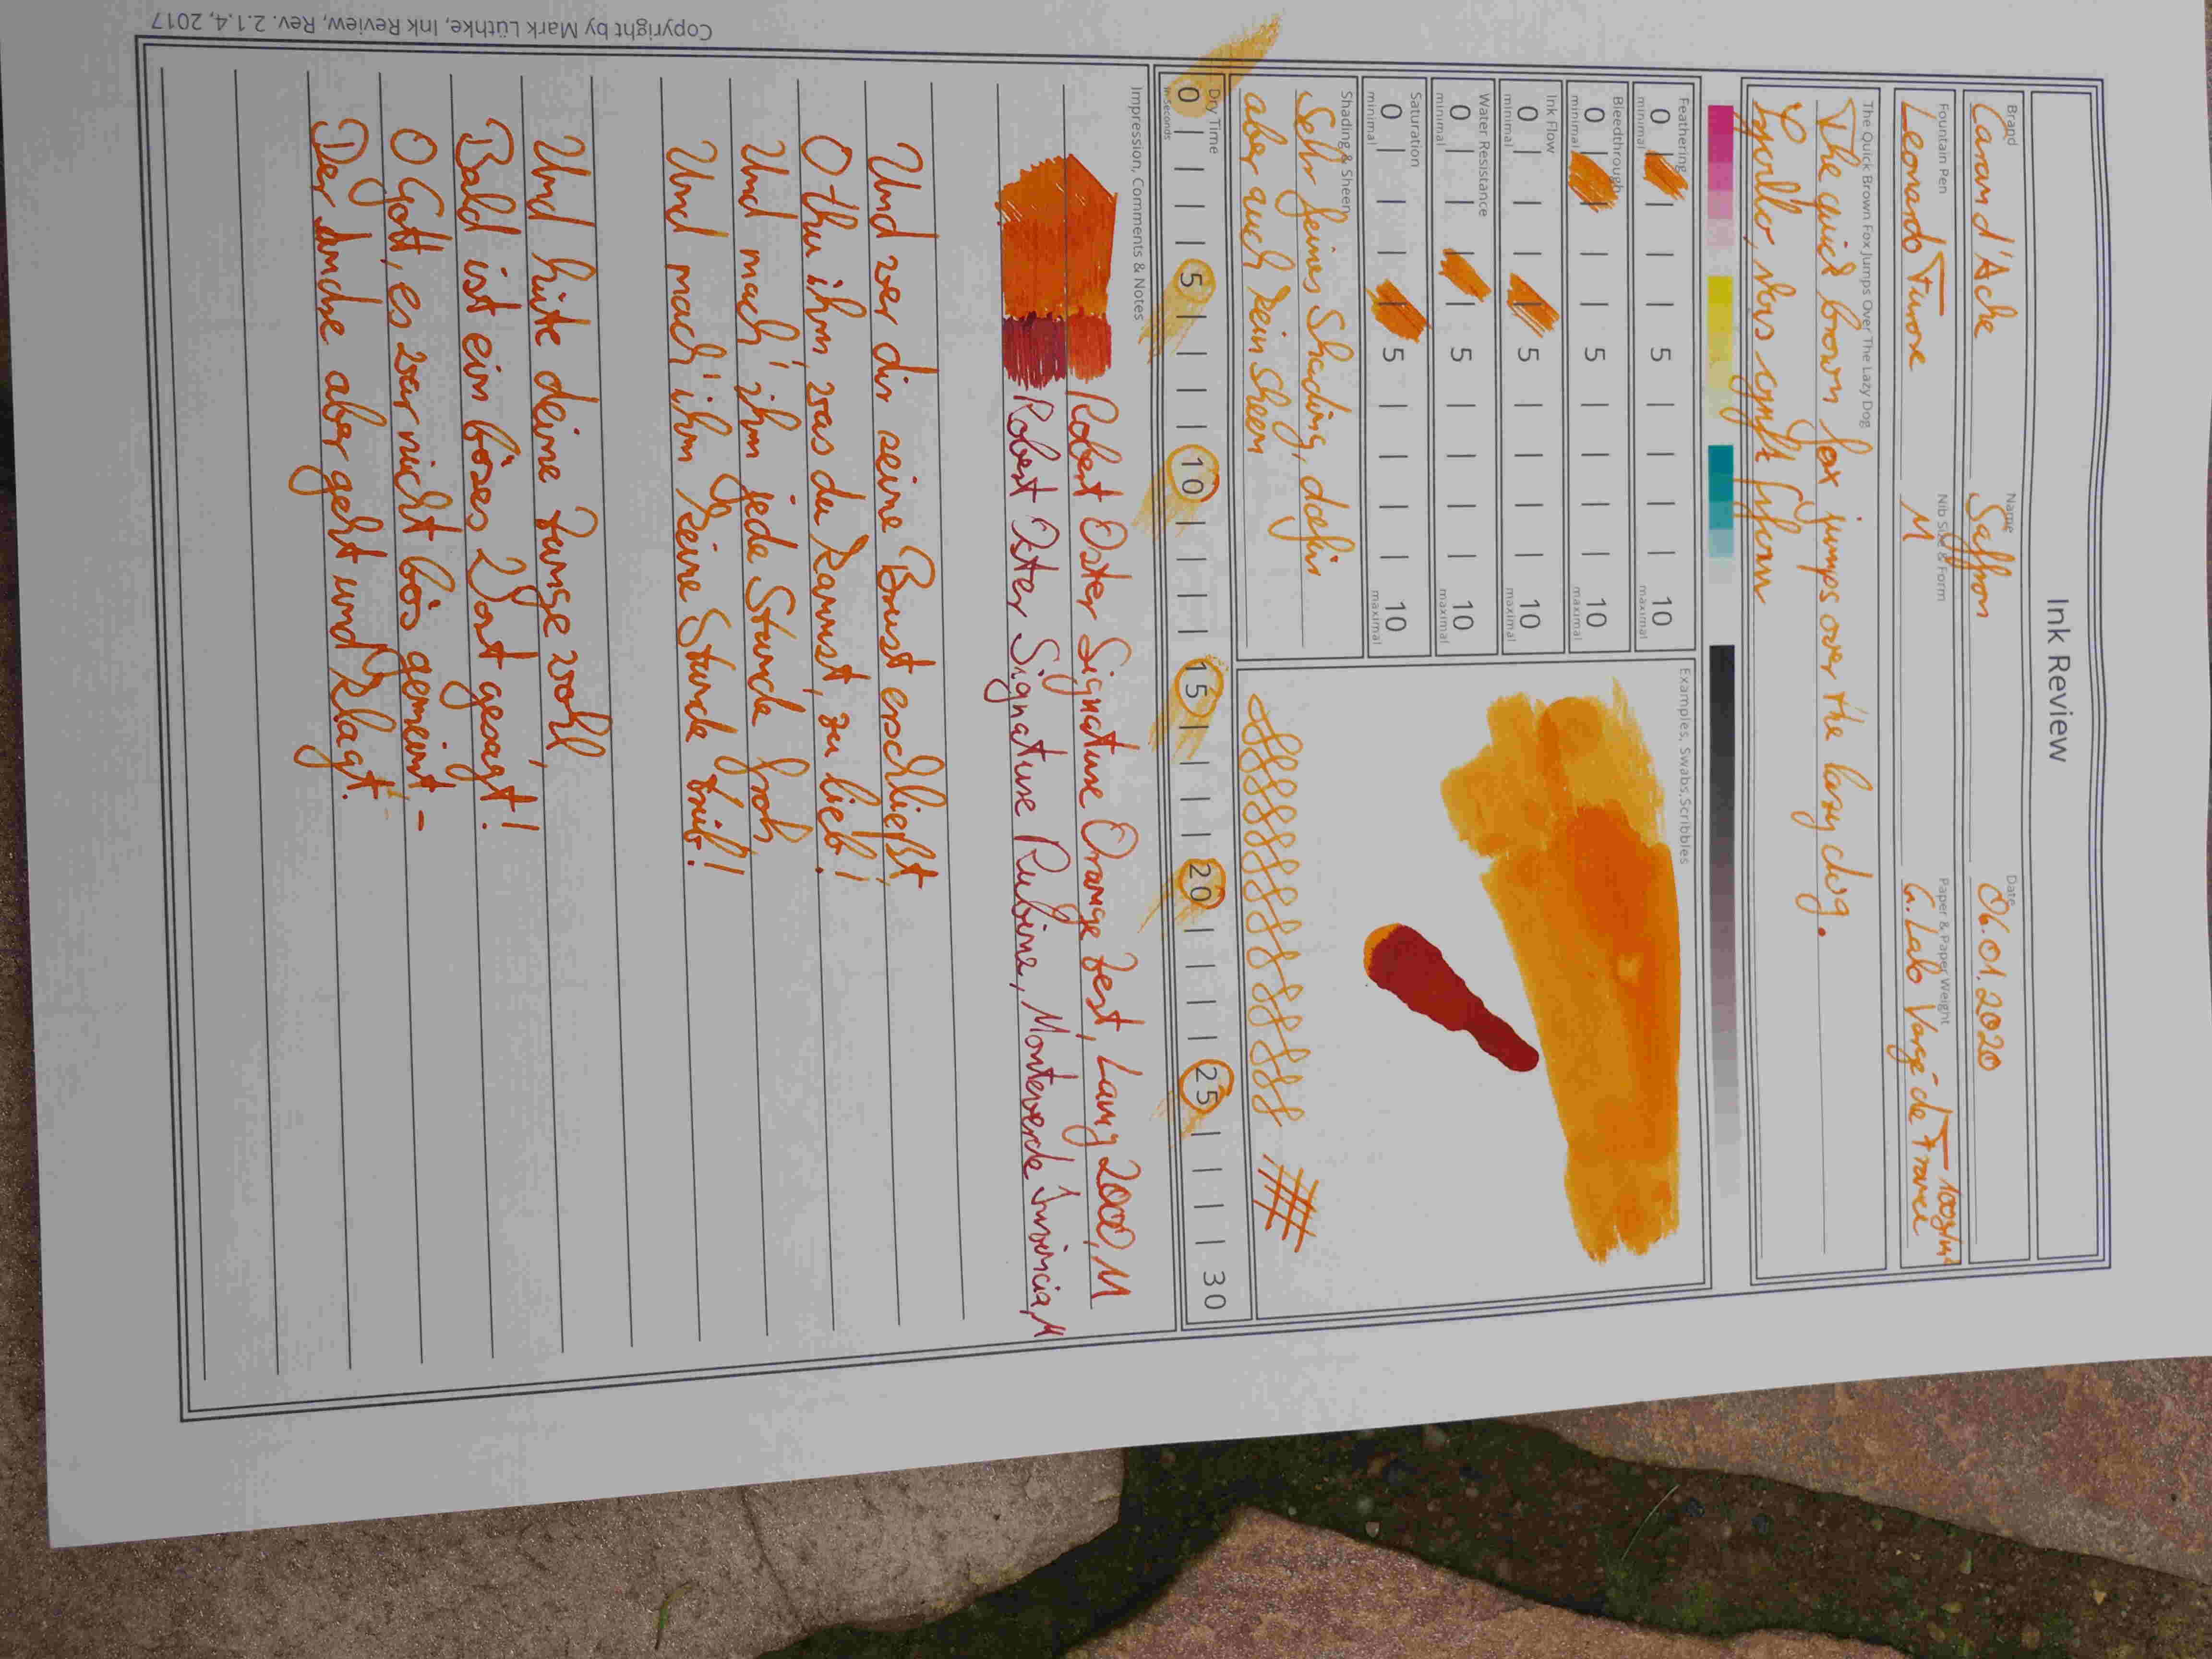 Ink Review
Brand
Caran d'Ache
Name
Saffron
Date
06.01.2020
Fountain Pen
Leonardo Furore
Nib Size & Form
M
Paper & Paper Weight
G. Lalo Vergé de France 100g/m²
The Quick Brown Fox Jumps Over The Lazy Dog
The quick brown fox jumps over the lazy dog.
Feathering
0 5 10
minimal maximal
Bleedthrough
0 5 10
minimal maximal
Ink Flow
0 5 10
minimal maximal
Water Resistance
0 5 10
minimal maximal
Saturation
0 5 10
minimal maximal
Shading & Sheen
Sehr feines Shading, dafür
aber auch kein Sheen
Examples, Swabs, Scribbles
Dry Time
in Seconds
0 5 10 15 20 25 30
Impression, Comments & Notes
Robert Oster Signature Orange Zest, Lamy 2000, M
Robert Oster Signature Rubine, Monteverde Invincia, M
Und wer dir seine Brust erschließt,
O thu ihm, was du kannst, zu lieb!
Und mach' ihm jede Stunde froh,
Und mach' ihm keine Stunde trüb!
Und hüte deine Zunge wohl,
Bald ist ein böses Wort gesagt!
O Gott, es war nicht bös gemeint -
Der Andre aber geht und klagt.
Copyright by Mark Lüthke, Ink Review, Rev. 2.1.4, 2017